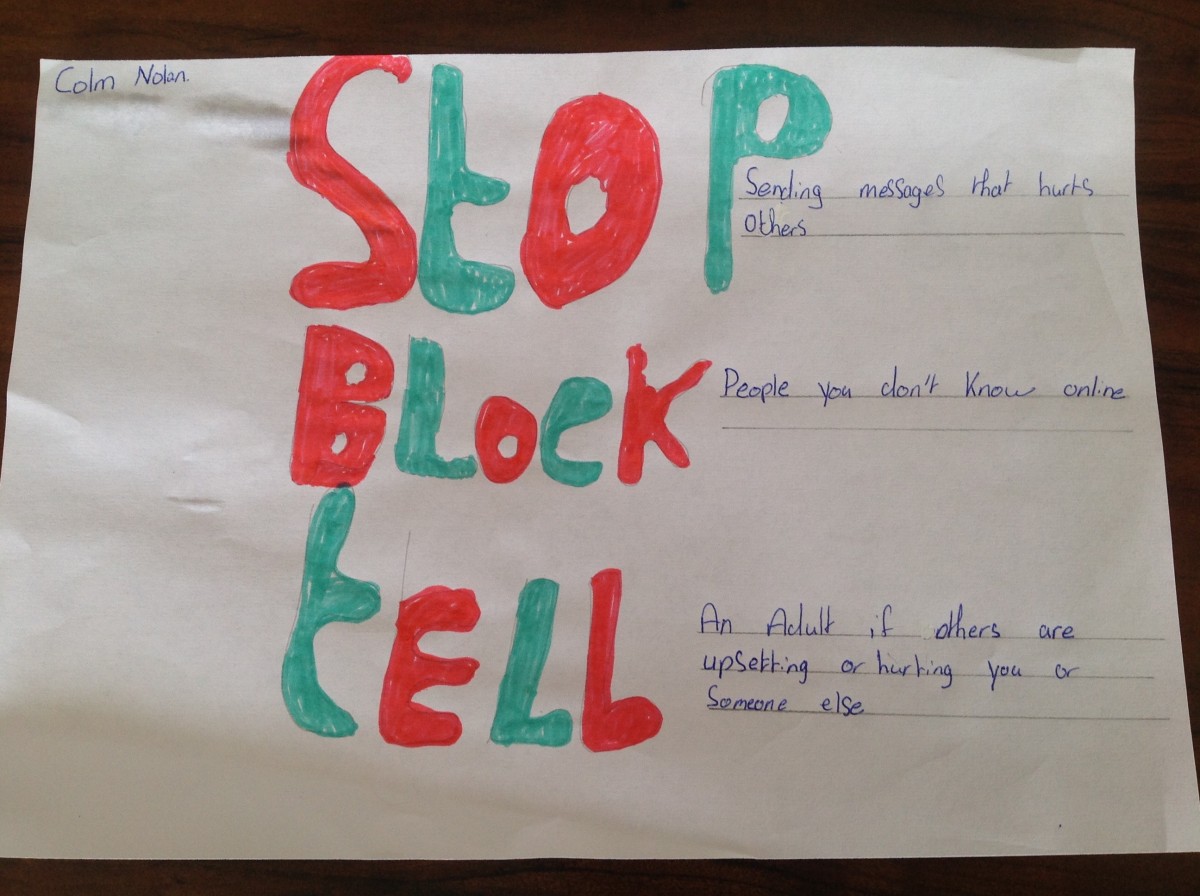 Colm Nolan.
StOP
Sending messages that hurts
Others
BLocK
People you don't know online
tELL
An Adult if others are
upsetting or hurting you or
Someone else